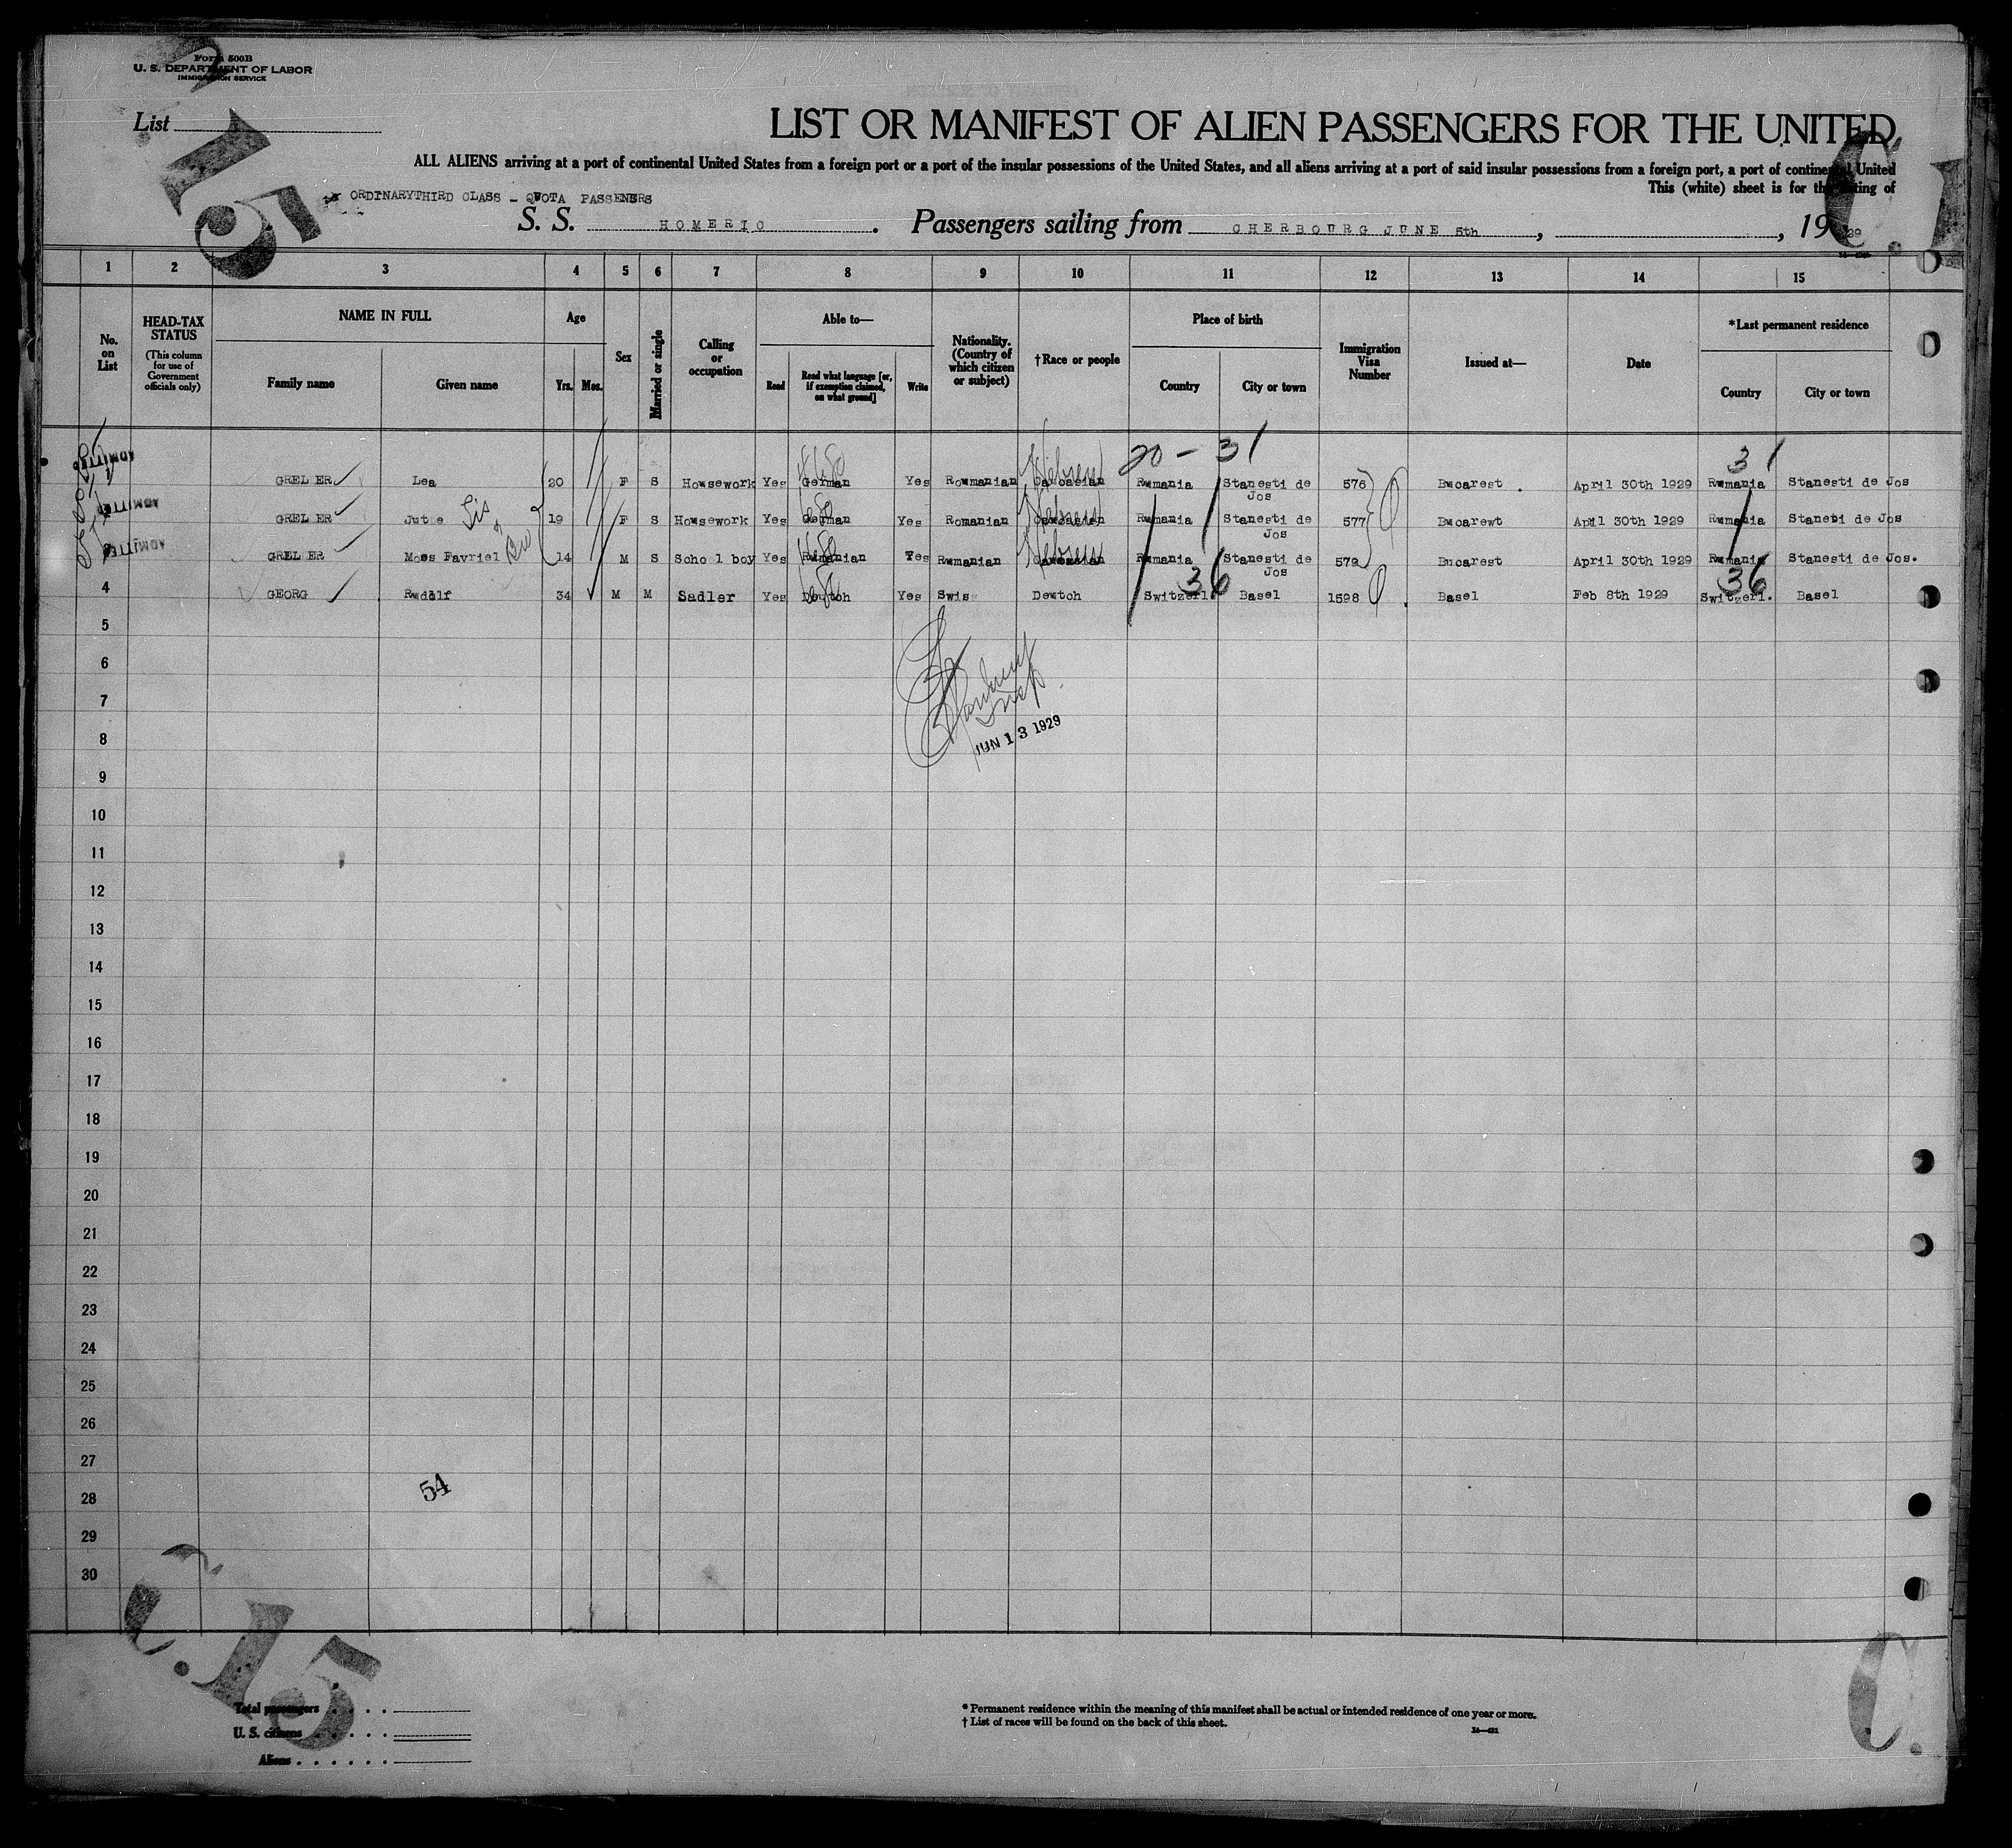 Form 500B
U. S. DEPARTMENT OF LABOR
IMMIGRATION SERVICE
List
LIST OR MANIFEST OF ALIEN PASSENGERS FOR THE UNITED
ALL ALIENS arriving at a port of continental United States from a foreign port or a port of the insular possessions of the United States, and all aliens arriving at a port of said insular possessions from a foreign port, a port of continental United
This (white) sheet is for the listing of
ORDINARYTHIRD CLASS - QUOTA PASSENERS
S. S. HOMERIC. Passengers sailing from CHERBOURG JUNE 5th, , 19 29
15
C.1
1 2 3 4 5 6 7 8 9 10 11 12 13 14 15
No. on List
HEAD-TAX STATUS
(This column for use of Government officials only)
NAME IN FULL
Family name Given name
Age
Yrs. Mos.
Sex
Married or single
Calling or occupation
Able to—
Read Read what language [or, if exemption claimed, on what ground] Write
Nationality. (Country of which citizen or subject)
†Race or people
Place of birth
Country City or town
Immigration Visa Number
Issued at—
Date
*Last permanent residence
Country City or town
20 - 31 31
ADMITTED GRELER Lea 20 F S Housework Yes German Yes Roumanian Hebrew Rumania Stanesti de Jos 576 Bucarest. April 30th 1929 Rumania Stanesti de Jos
ADMITTED GRELER Sis 19 F S Housework Yes German Yes Romanian Hebrew Rumania Stanesti de Jos 577 Bucarewt April 30th 1929 Rumania Stanesti de Jos
ADMITTED GRELER Moss Favriel Bro 14 M S School boy Yes Rumanian Yes Rumanian Hebrew Rumania Stanesti de Jos 579 Bucarest April 30th 1929 Rumania Stanesti de Jos.
36 36
4 GEORG Rudolf 34 M M Sadler Yes Deutch Yes Swiss Deutch Switzerl. Basel 1598 Basel Feb 8th 1929 Switzerl. Basel
5
6
7
JUN 13 1929
8
9
10
11
12
13
14
15
16
17
18
19
20
21
22
23
24
25
26
27
54
28
29
30
C.15
C.
Total passengers
U. S. citizens
Aliens
* Permanent residence within the meaning of this manifest shall be actual or intended residence of one year or more.
† List of races will be found on the back of this sheet.